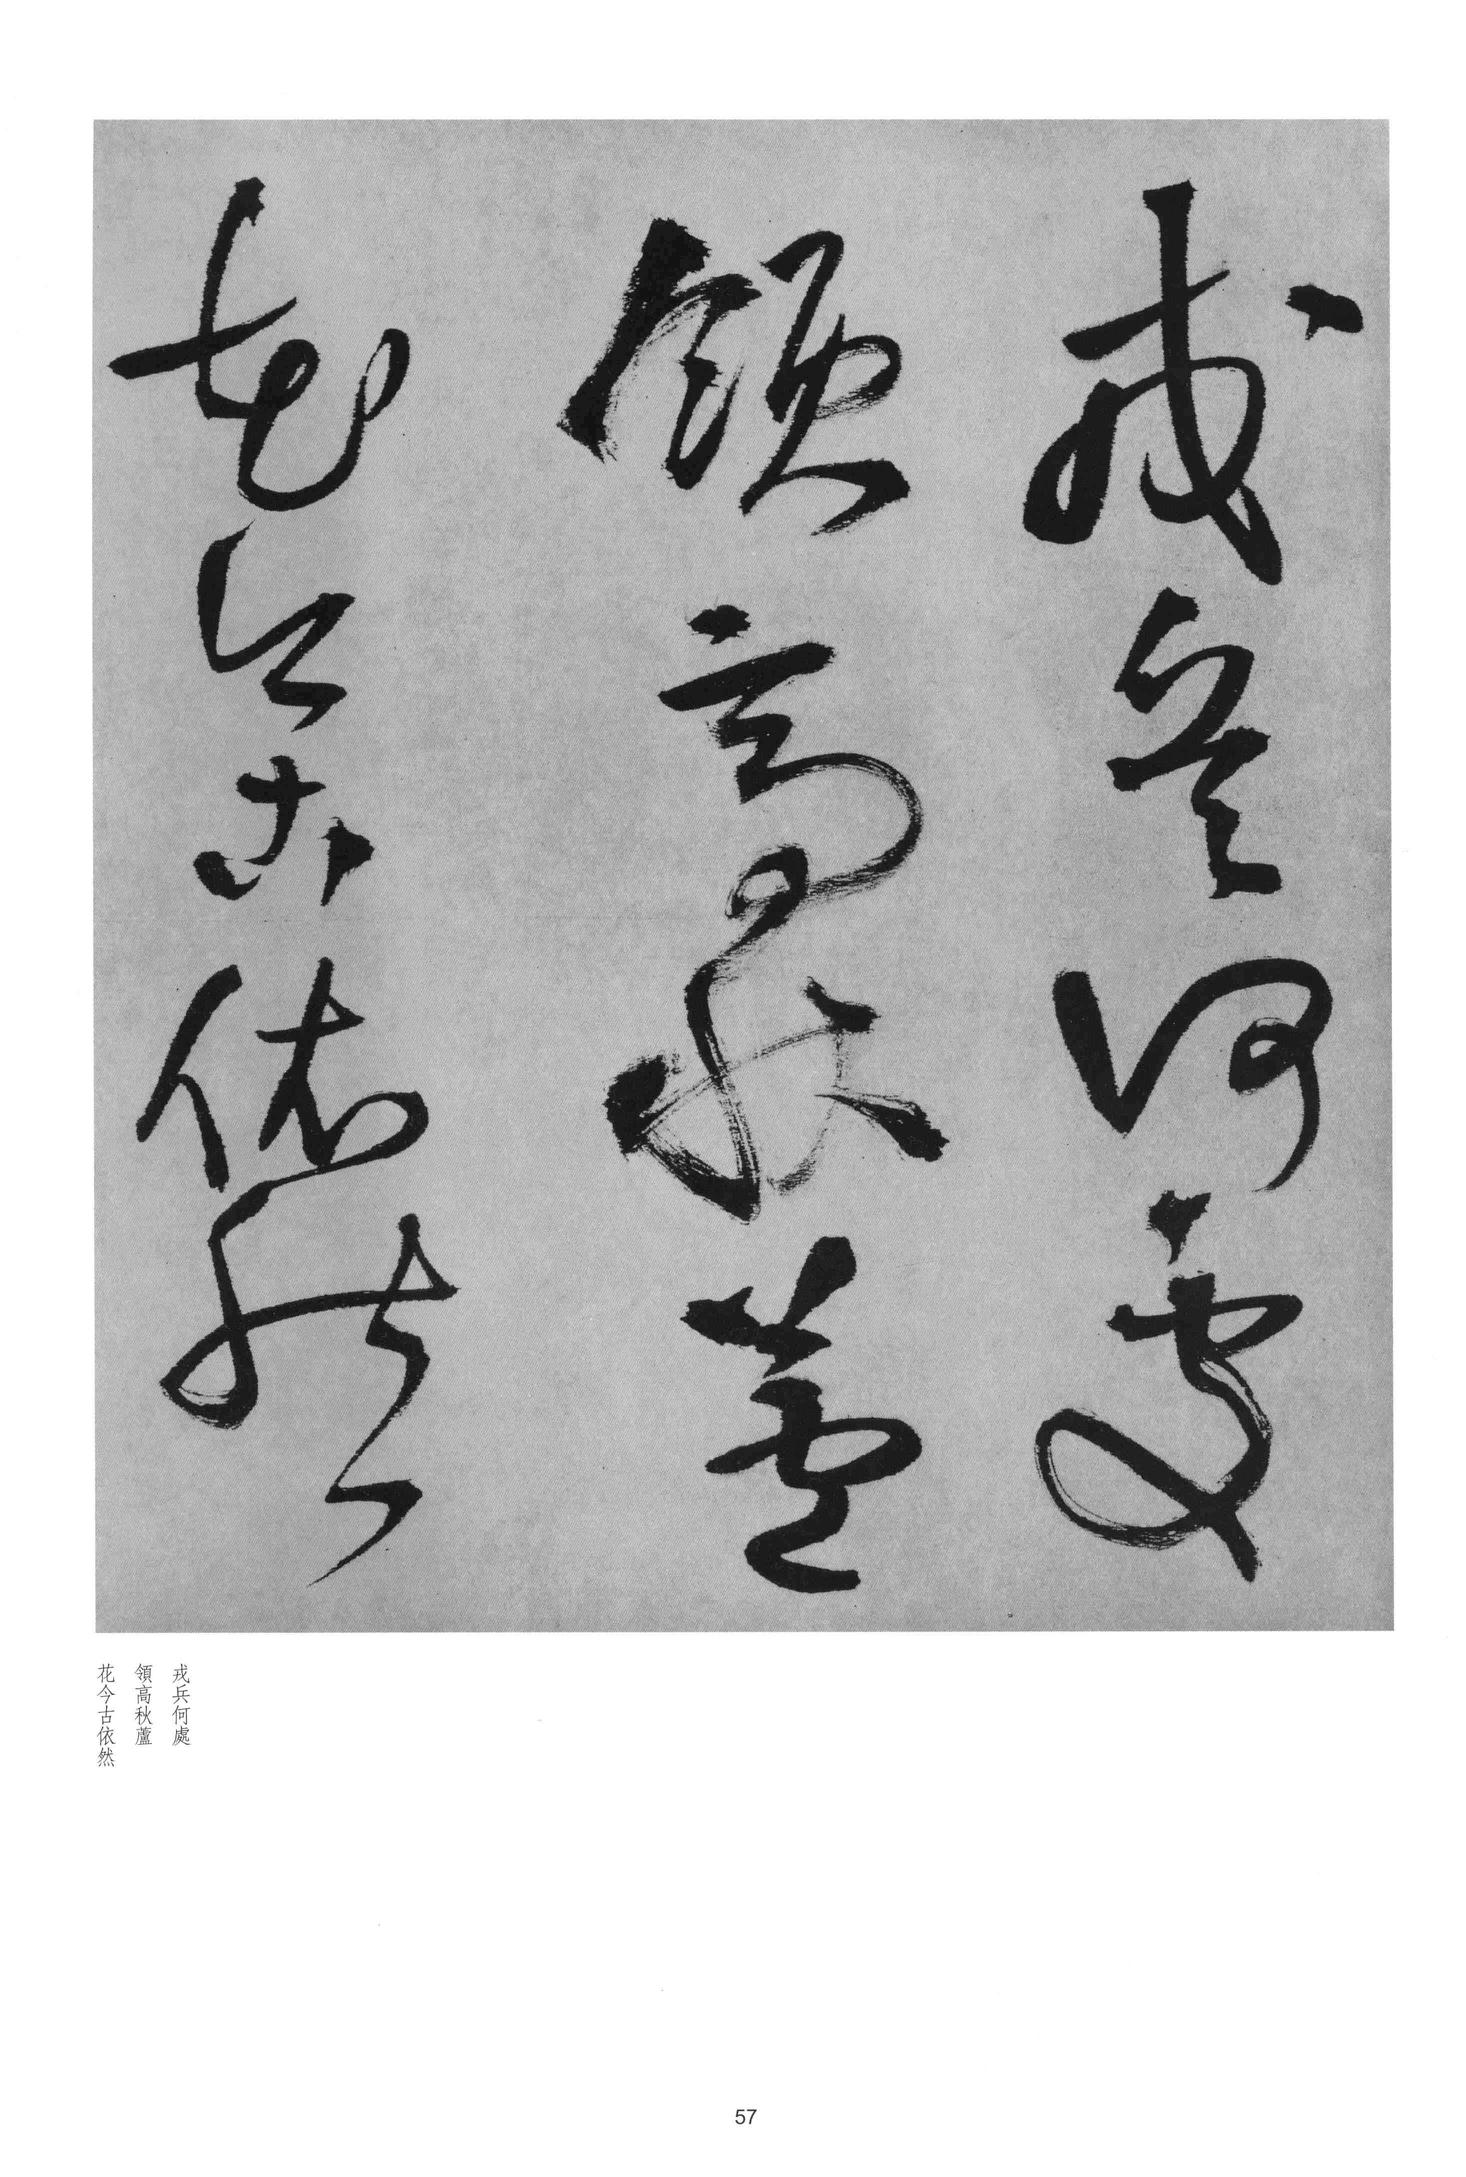 戎兵何處
領高秋蘆
花今古依然
戎兵何處
領高秋蘆
花今古依然
57